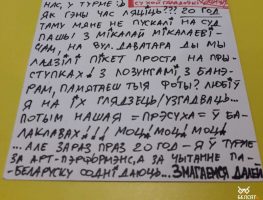 НАС, У ТУРМЕ :)
ЯК ГЭНЫ ЧАС ЛЯЦІЦЬ!?! 20 ГОД
ТАМУ МАНЕ НЕ ПУСКАЛІ НА СУД
ПАШЫ! З МІКАЛАЙ МІКАЛАЕВІ-
ЧАМ, НА ВУЛ. ДАВАТАРА ДЫ МЫ
ЛАДЗІЛІ ПІКЕТ ПРОСТА НА ПРЫ-
СТУПКАХ! З ЛОЗУНГАМІ З БАНЕ-
РАМ, ПАМЯТАЕШ ТЫЯ ФОТЫ? ЛЮБІЎ
Я НА ІХ ГЛЯДЗЕЦЬ/УЗГАДВАЦЬ...
ПОТЫМ НАШАЯ = ПРЭСУХА = Ў БА-
ЛАКЛАВАХ!!! МОЦЫ! МОЦЫ! МОЦЫ!
...АЛЕ ЗАРАЗ ПРАЗ 20 ГОД - Я Ў ТУРМЕ
ЗА АРТ-ПЭРФОРМЭНС, А ЗА ЧЫТАННЕ ПА-
БЕЛАРУСКУ ... ЗМАГАЕМСЯ ДАЛЕЙ
БЕЛСАТ